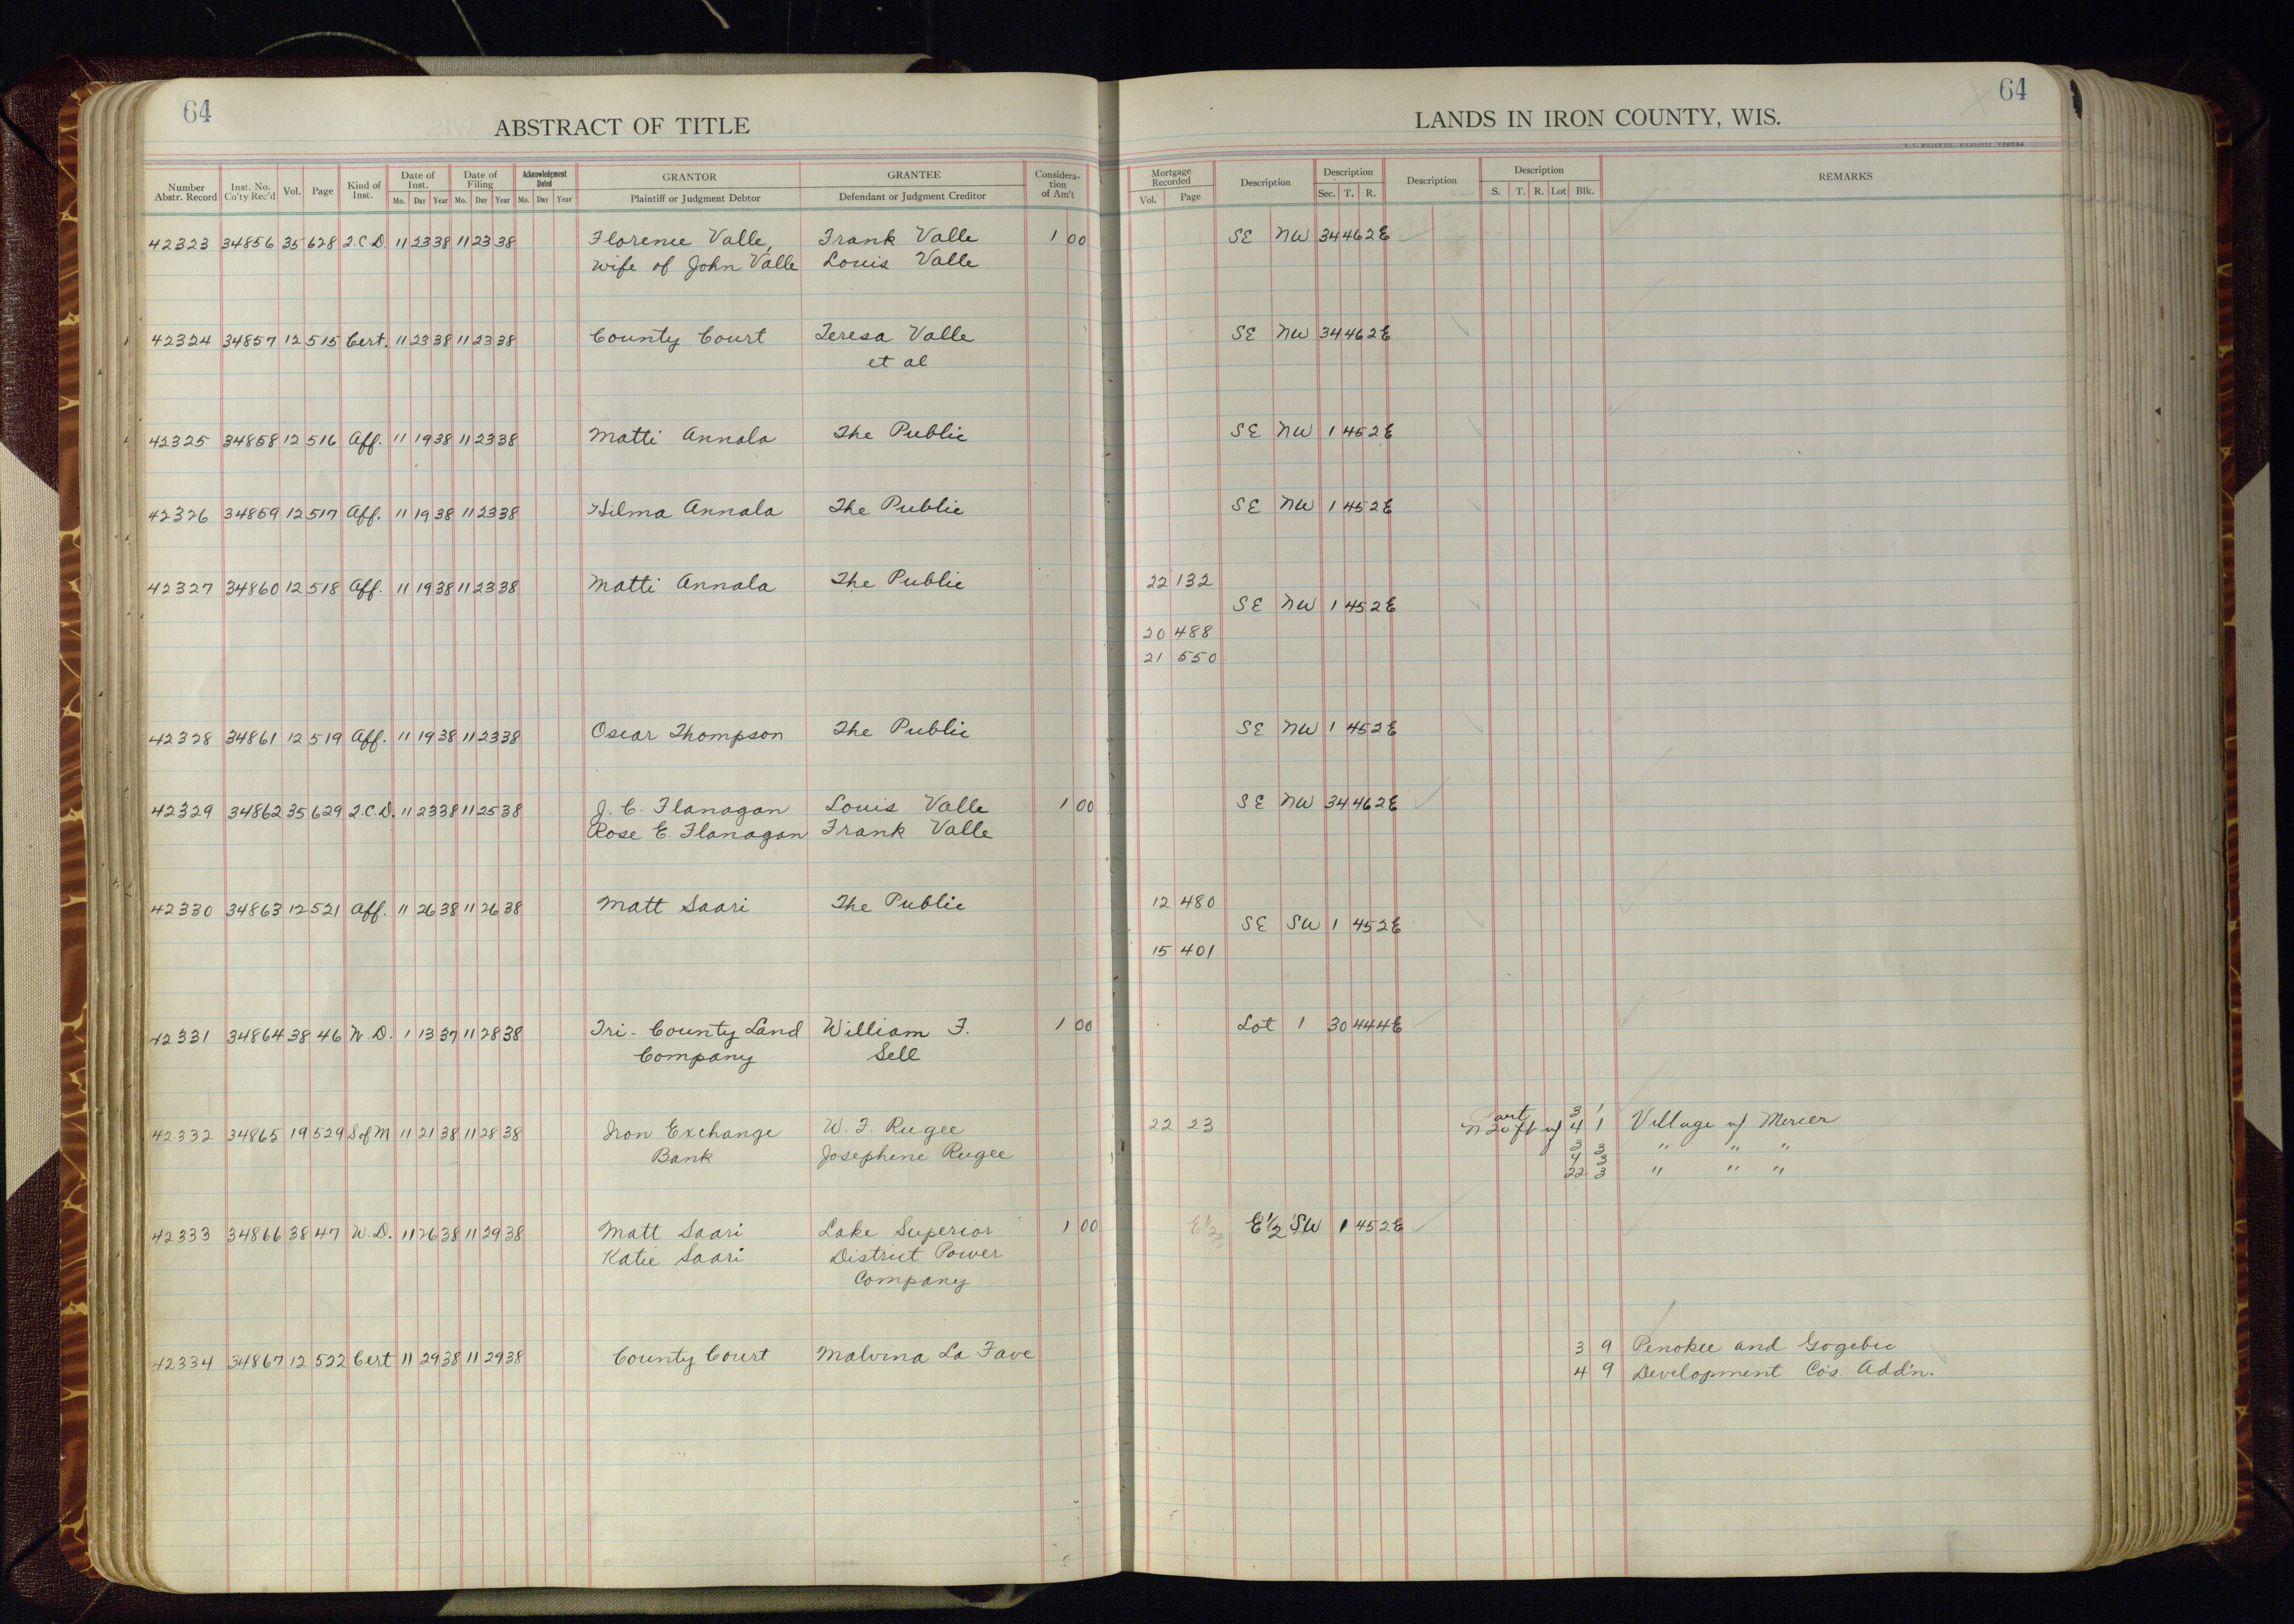 64
ABSTRACT OF TITLE
Number Abstr. Record | Inst. No. Co'ty Rec'd | Vol. | Page | Kind of Inst. | Date of Inst. Mo. Day Year | Date of Filing Mo. Day Year | Acknowledgment Dated Mo. Day Year | GRANTOR Plaintiff or Judgment Debtor | GRANTEE Defendant or Judgment Creditor | Considera-tion of Am't
42323 34856 35 628 Q.C.D. 11 23 38 11 23 38 Florence Valle, Frank Valle 1 00
wife of John Valle Louis Valle
42324 34857 12 515 Cert. 11 23 38 11 23 38 County Court Teresa Valle
et al
42325 34858 12 516 Aff. 11 19 38 11 23 38 Matti Annala The Public
42326 34859 12 517 Aff. 11 19 38 11 23 38 Hilma Annala The Public
42327 34860 12 518 Aff. 11 19 38 11 23 38 Matti Annala The Public
42328 34861 12 519 Aff. 11 19 38 11 23 38 Oscar Thompson The Public
42329 34862 35 629 Q.C.D. 11 23 38 11 25 38 J. C. Flanagan Louis Valle 1 00
Rose E. Flanagan Frank Valle
42330 34863 12 521 Aff. 11 26 38 11 26 38 Matt Saari The Public
42331 34864 38 46 W.D. 1 13 37 11 28 38 Tri-County Land William F. 1 00
Company Sell
42332 34865 19 529 S of M 11 21 38 11 28 38 Iron Exchange W. F. Rugee
Bank Josephine Rugee
42333 34866 38 47 W.D. 11 26 38 11 29 38 Matt Saari Lake Superior 1 00
Katie Saari District Power
Company
42334 34867 12 522 Cert 11 29 38 11 29 38 County Court Malvina La Fave
64
LANDS IN IRON COUNTY, WIS.
H. C. MILLER CO., MILWAUKEE Y28594
Mortgage Recorded Vol. Page | Description | Description Sec. T. R. | Description | Description S. T. R. Lot Blk. | REMARKS
SE NW 34 46 2E
SE NW 34 46 2E
SE NW 1 45 2E
SE NW 1 45 2E
22 132
SE NW 1 45 2E
20 488
21 550
SE NW 1 45 2E
SE NW 34 46 2E
12 480
SE SW 1 45 2E
15 401
Lot 1 30 44 4E
Part 3 1
22 23 N 20 ft of 4 1 Village of Mercer
3 3 " " "
4 3
22 3 " " "
E 1/2 E 1/2 SW 1 45 2E
3 9 Penokee and Gogebic
4 9 Development Co's. Add'n.